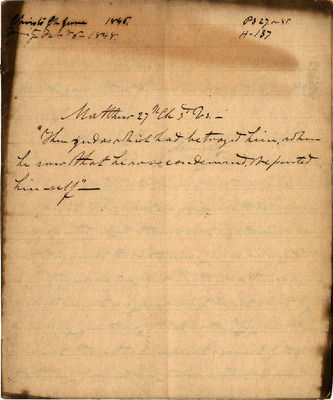 Christ Ch 1846.
Feb 1848
H-157
Matthew 27th Ch 3d Vs. –
"Then Judas which had betrayed him, when
he saw that he was condemned, repented
himself" –